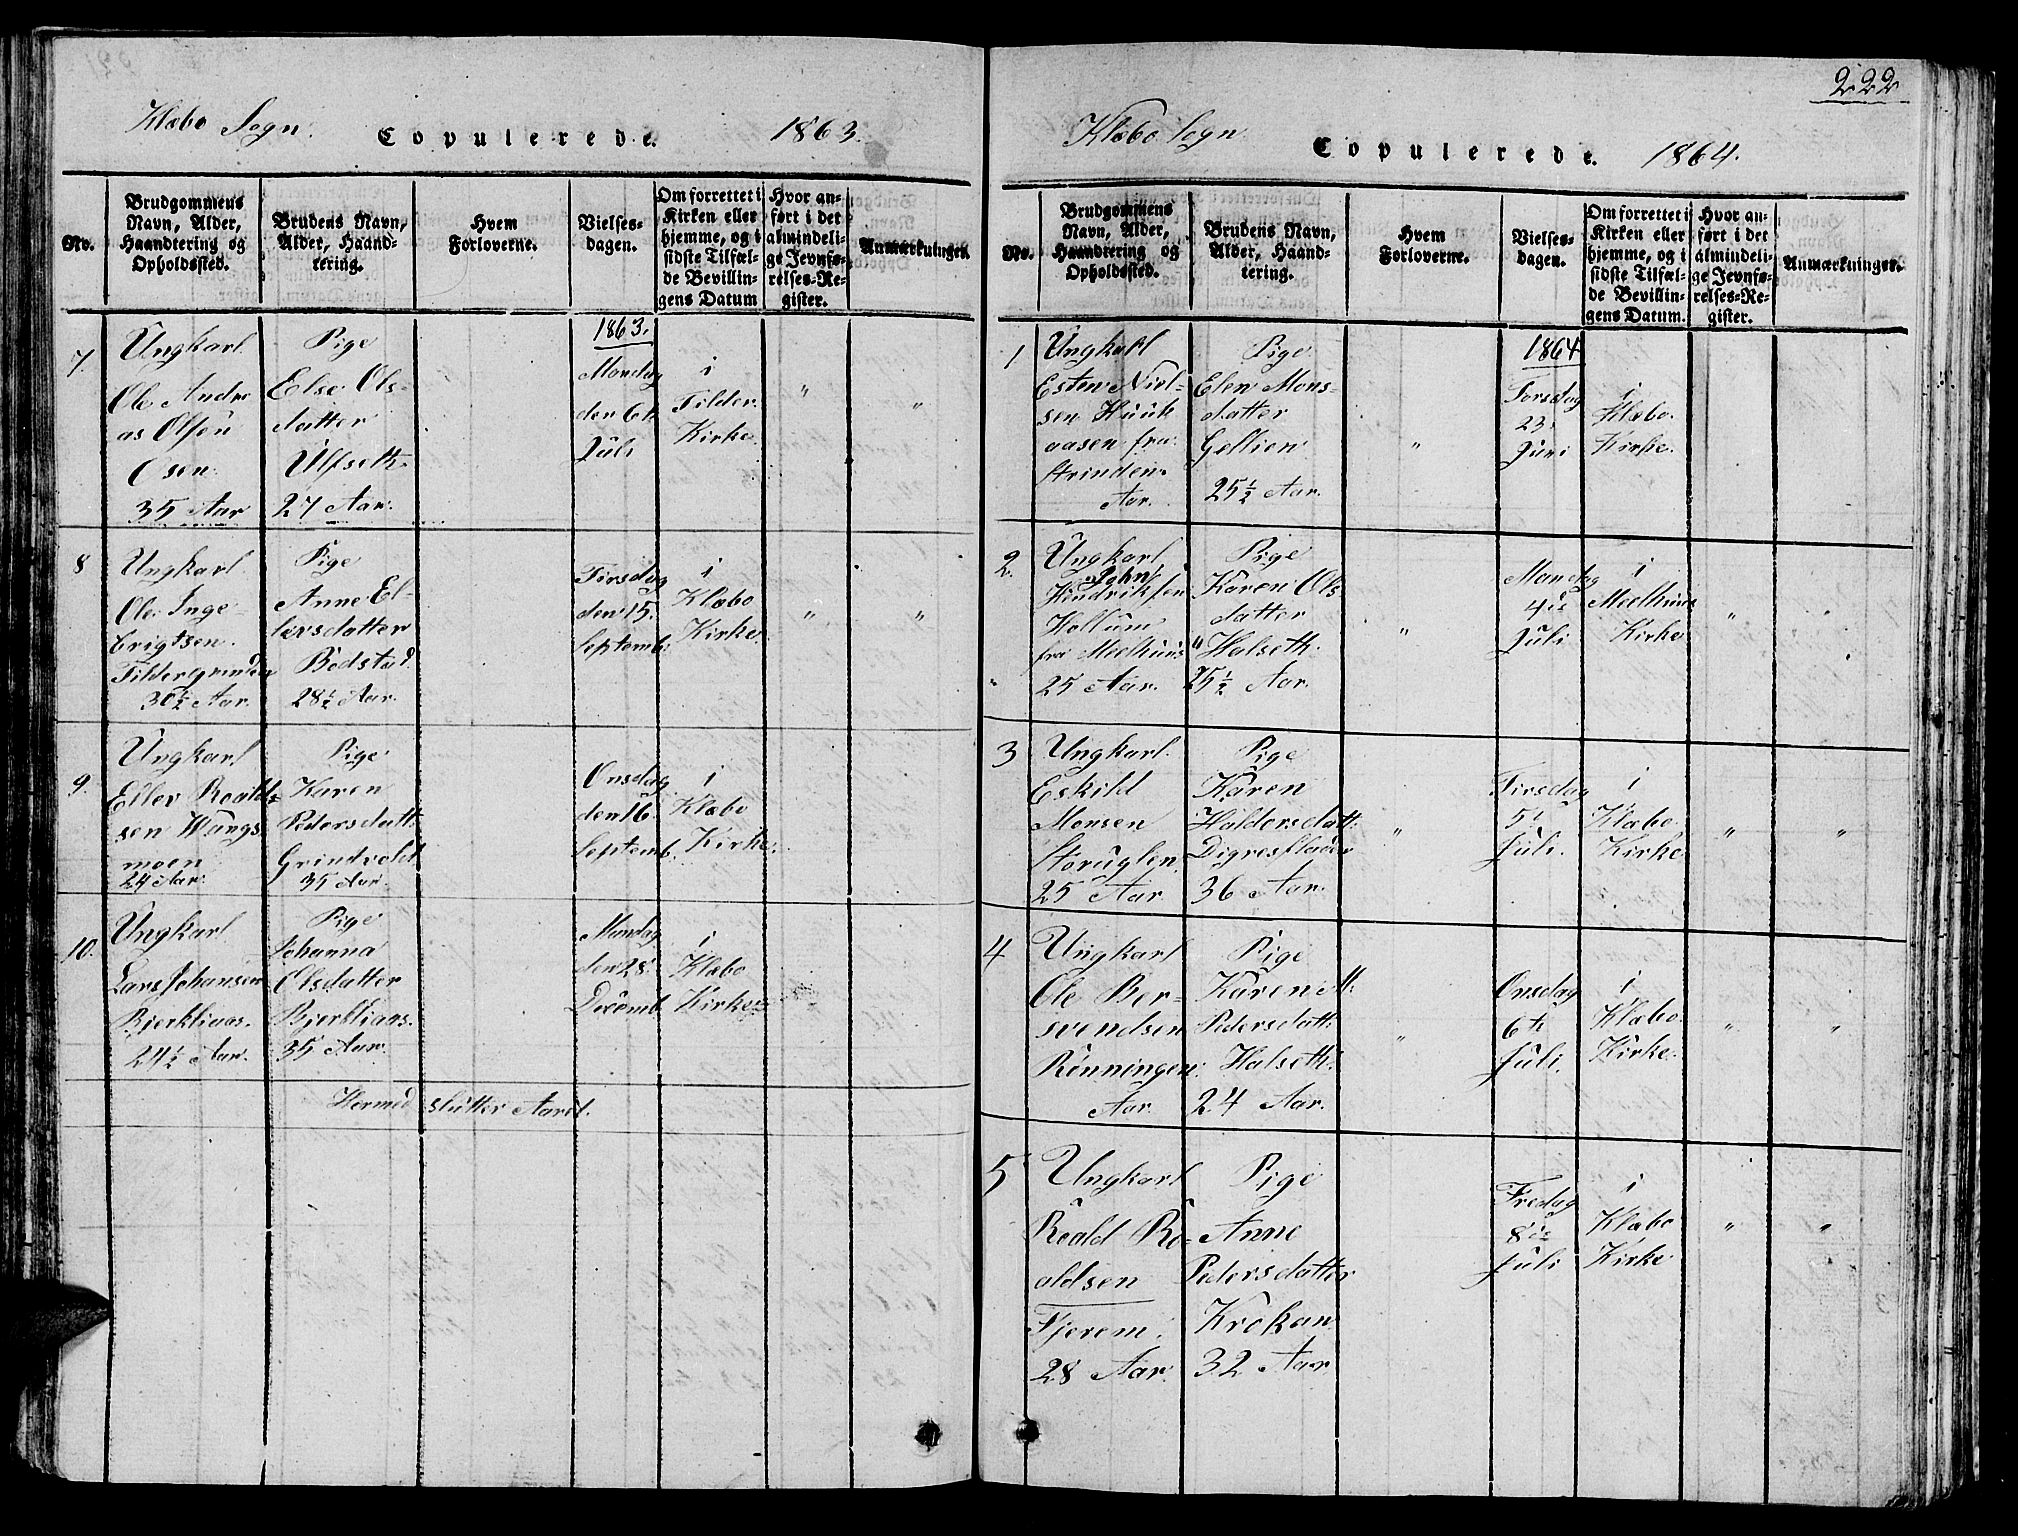 Klæbo Sogn.
Copulerede.
1863.
No.
Brudgommens
Navn, Alder,
Haandtering og
Opholdssted.
Brudens Navn,
Alder, Haand-
tering.
Hvem
Forloverne.
Vielses-
dagen.
Om forrettet i
Kirken eller
hjemme, og i
sidste Tilfæl-
de Bevillin-
gens Datum
Hvor an-
ført i det
almindeli-
ge Jevnfø-
relses-Re-
gister.
Anmærkninger.
7.
Ungkarl
Ole Andre
as Olsen
Osen.
35 Aar
Pige
Else Ols-
datter
Ulfseth
27 Aar.
1863.
Mandag
den 6te
Juli
i
Tilder
Kirke.
"
"
8
Ungkarl.
Ole Inge-
brigtsen.
Tildergrinden
30½ Aar.
Pige
Anne El-
lersdatter
Bodstad.
28½ Aar.
Tirsdag
den 15.
Septemb.
i
Klæbo
Kirke.
"
"
9.
Ungkarl
Eller Roalds-
sen Wangs
moen
24 Aar.
Pige
Karen
Pedersdatt:
Grindvold
35 Aar.
Onsdag
den 16
Septemb.
i
Klæbo
Kirke.
10.
Ungkarl
Lars Johansen
Bjerkliaas.
24½ Aar.
Pige
Johanna
Olsdatter
Bjerkliaas.
35 Aar.
Mandag
den 28.
Decemb.
i
Klæbo
Kirke.
Hermed slutter Aaret.
222
Klæbo Sogn
Copulerede.
1864.
No.
Brudgommens
Navn, Alder,
Haandtering og
Opholdssted.
Brudens Navn,
Alder, Haand-
tering.
Hvem
Forloverne.
Vielses-
dagen.
Om forrettet i
Kirken eller
hjemme, og i
sidste Tilfæl-
de Bevillin-
gens Datum.
Hvor an-
ført i det
almindeli-
ge Jevnfø-
relses-Re-
gister.
Anmærkninger.
1
Ungkarl
Esten Niel-
sen Huuk
aasen fra
Strinden
Aar.
Pige
Elen Mons-
datter
Gellien
25½ Aar.
"
1864
Torsdag
23.
Juni
i
Klæbo
Kirke.
2.
Ungkarl
John
Hindriksen
Hollum
fra Meelhuus
25 Aar.
Pige
Karen Ols
datter
Halseth.
25½ Aar.
"
Mandag
4de
Juli
i
Meelhuus
Kirke
"
3
Ungkarl.
Eskild
Monsen
Storuglen.
25 Aar
Pige
Karen
Haldorsdatt:
Digresflaaden
36 Aar.
"
Tirsdag
5te
Juli.
i
Klæbo
Kirke
"
"
4
Ungkarl
Ole Ber-
svendsen
Rønningen.
Aar.
Pige
Karen M:
Pedersdatt:
Halseth.
24 Aar.
"
Onsdag
6te
Juli.
i
Klæbo
Kirke.
"
"
5
Ungkarl
Roald Ro-
aldsen
Fjerem.
28 Aar
Pige
Anne
Pedersdatter
Krokan
32 Aar
Fredag
8de
Juli
i
Klæbo
Kirke
"
"